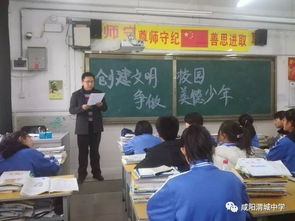 尊师守纪
善思进取
创建文明 校园
争做 美德少年
咸阳渭城中学